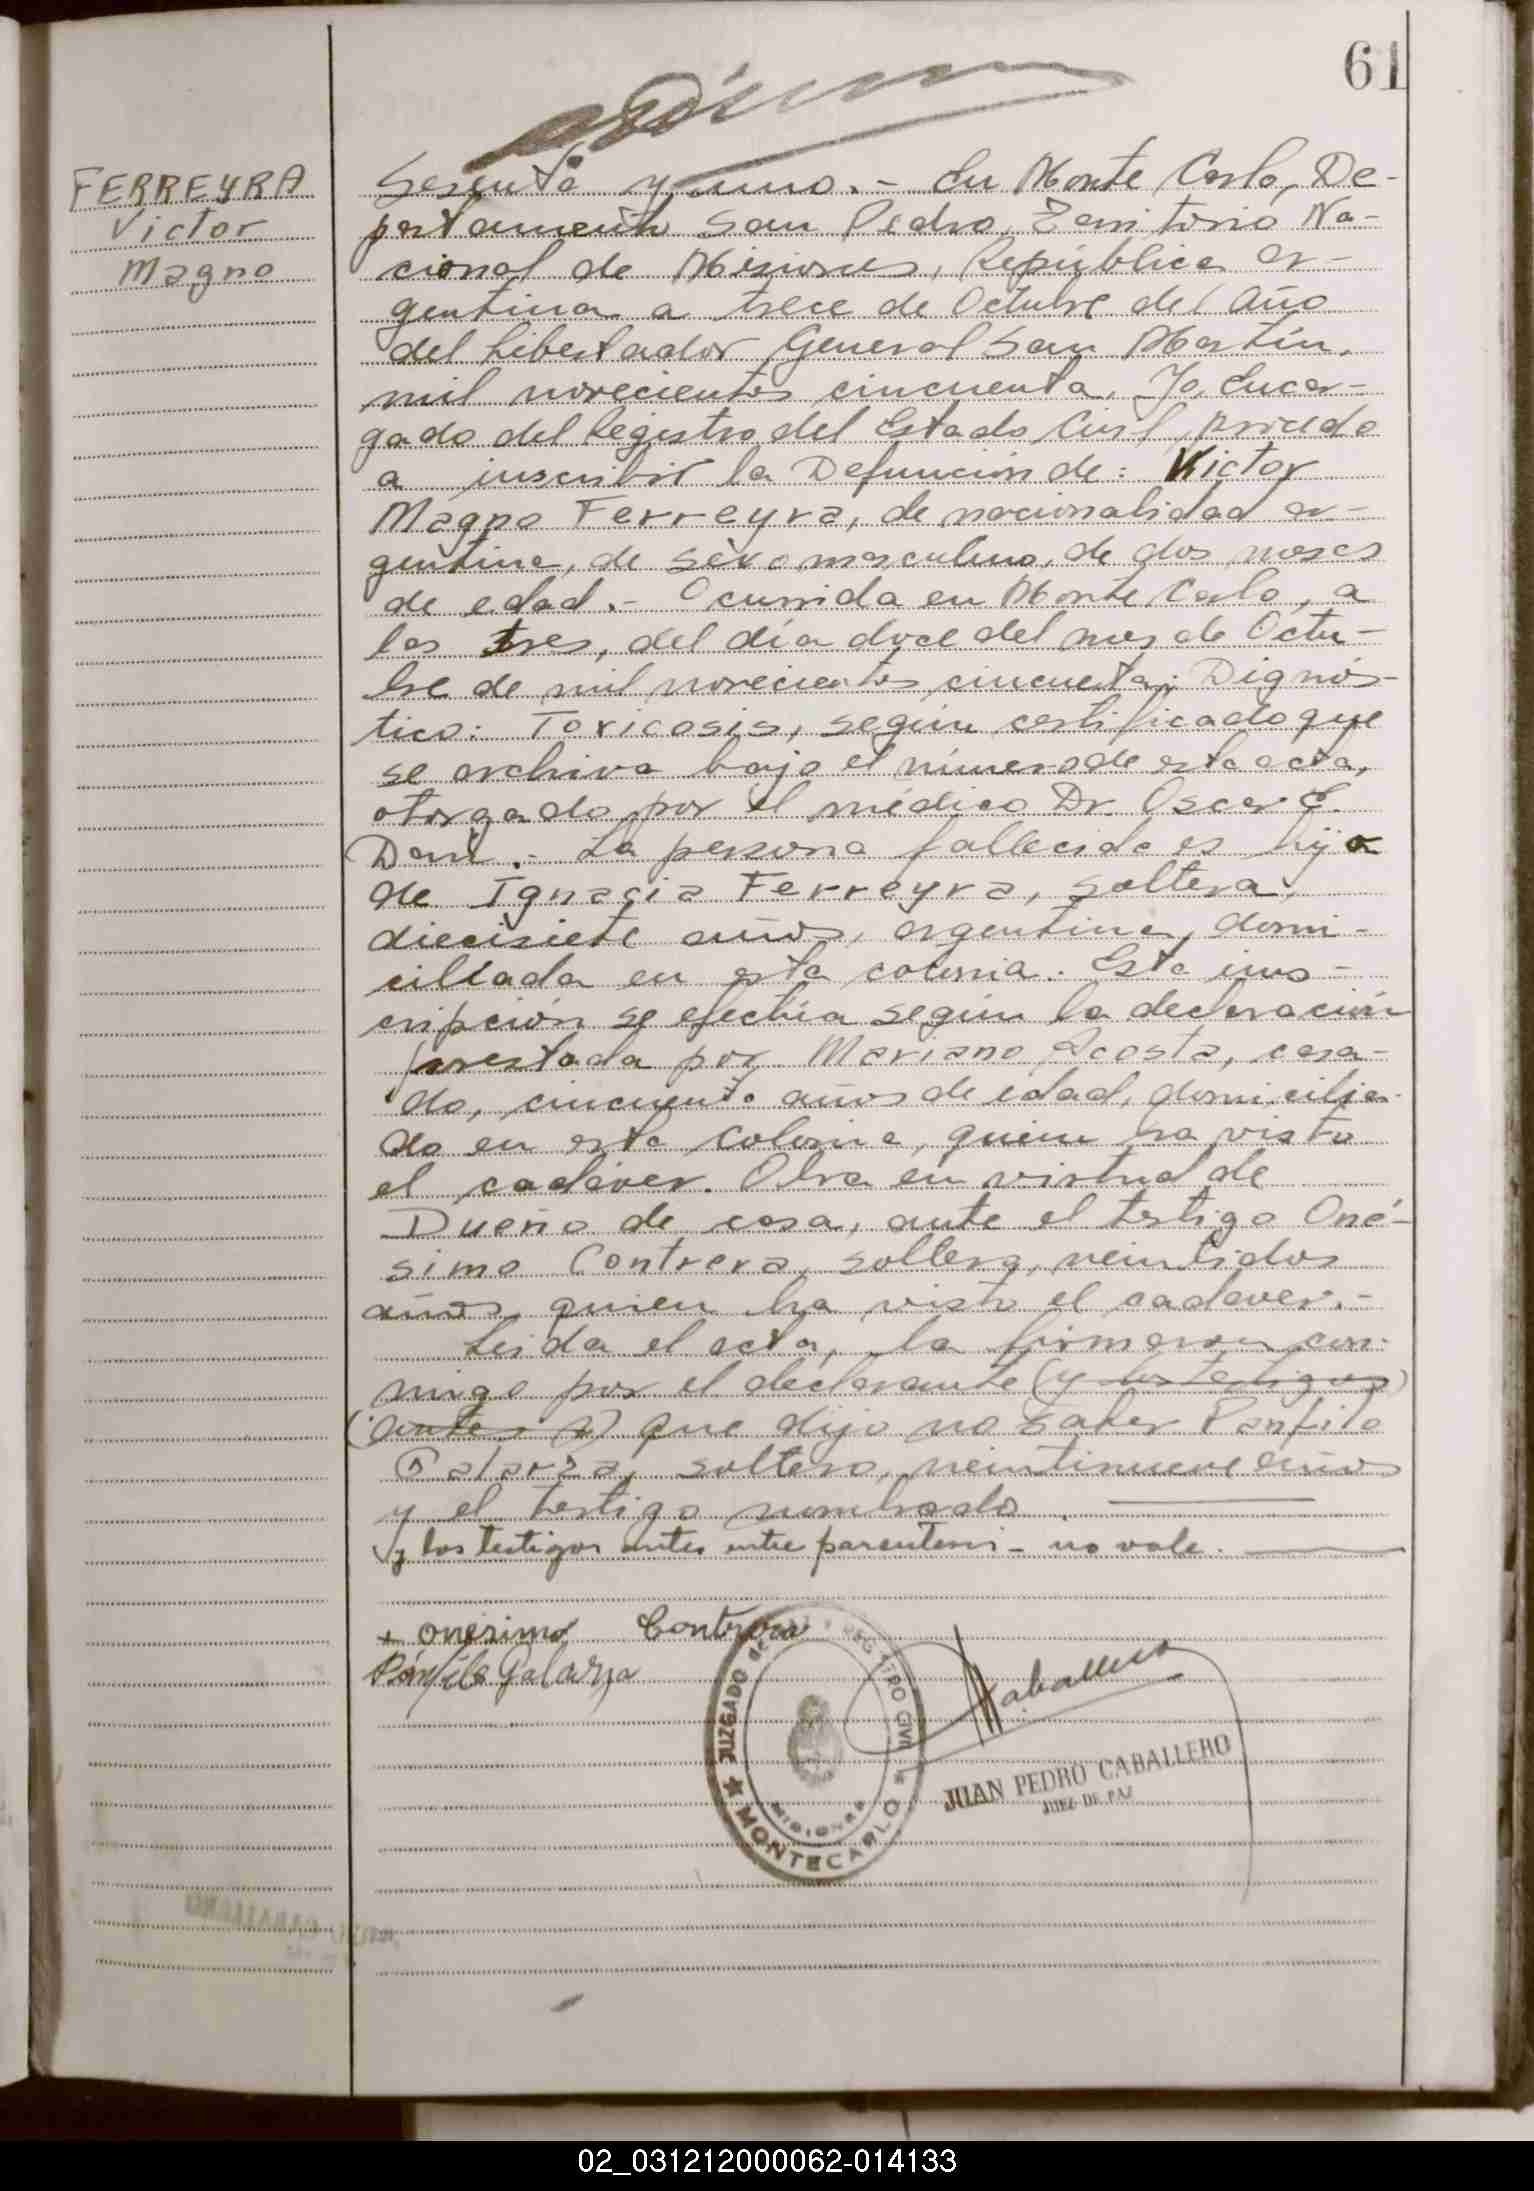 61
FERREYRA
Victor
Magno
Sesenta y uno.- En Monte Carlo, De-
partamento San Pedro, Territorio Na-
cional de Misiones, República Ar-
gentina a trece de Octubre del Año
del Libertador General San Martín,
mil novecientos cincuenta, Yo, Encar-
gado del Registro del Estado Civil, procedo
a inscribir la Defunción de: Victor
Magno Ferreyra, de nacionalidad ar-
gentina, de sexo masculino, de dos meses
de edad.- Ocurrida en Monte Carlo, a
las tres, del día doce del mes de Octu-
bre de mil novecientos cincuenta; Dignós-
tico: Toxicosis, según certificado que
se archiva bajo el número de esta acta,
otorgado por el médico Dr. Oscar E.
La persona fallecida es hijo
de Ignacia Ferreyra, soltera,
diecisiete años, argentina, domi-
ciliada en esta colonia. Esta ins-
cripción se efectúa según la declaración
prestada por Mariano Acosta, casa-
do, cincuenta años de edad, domicilia-
do en esta Colonia, quien ha visto
el cadáver. Obra en virtud de
Dueño de casa, ante el testigo Oné-
simo Contrera, soltero, veintidos
años, quien ha visto el cadaver.-
Leida el acta, la firmaron con-
migo por el declarante (y los testigos)
(antes a) que dijo no saber Panfilo
Galarza, soltero, veintinueve años
y el testigo nombrado.
y los testigos antes entre parentesis - no vale.
+ onesimo Contrera
Pánfilo Galarza
Caballero
JUZGADO de PAZ y REGISTRO CIVIL
MISIONES
★ MONTECARLO ★
JUAN PEDRO CABALLERO
JUEZ DE PAZ
02_031212000062-014133